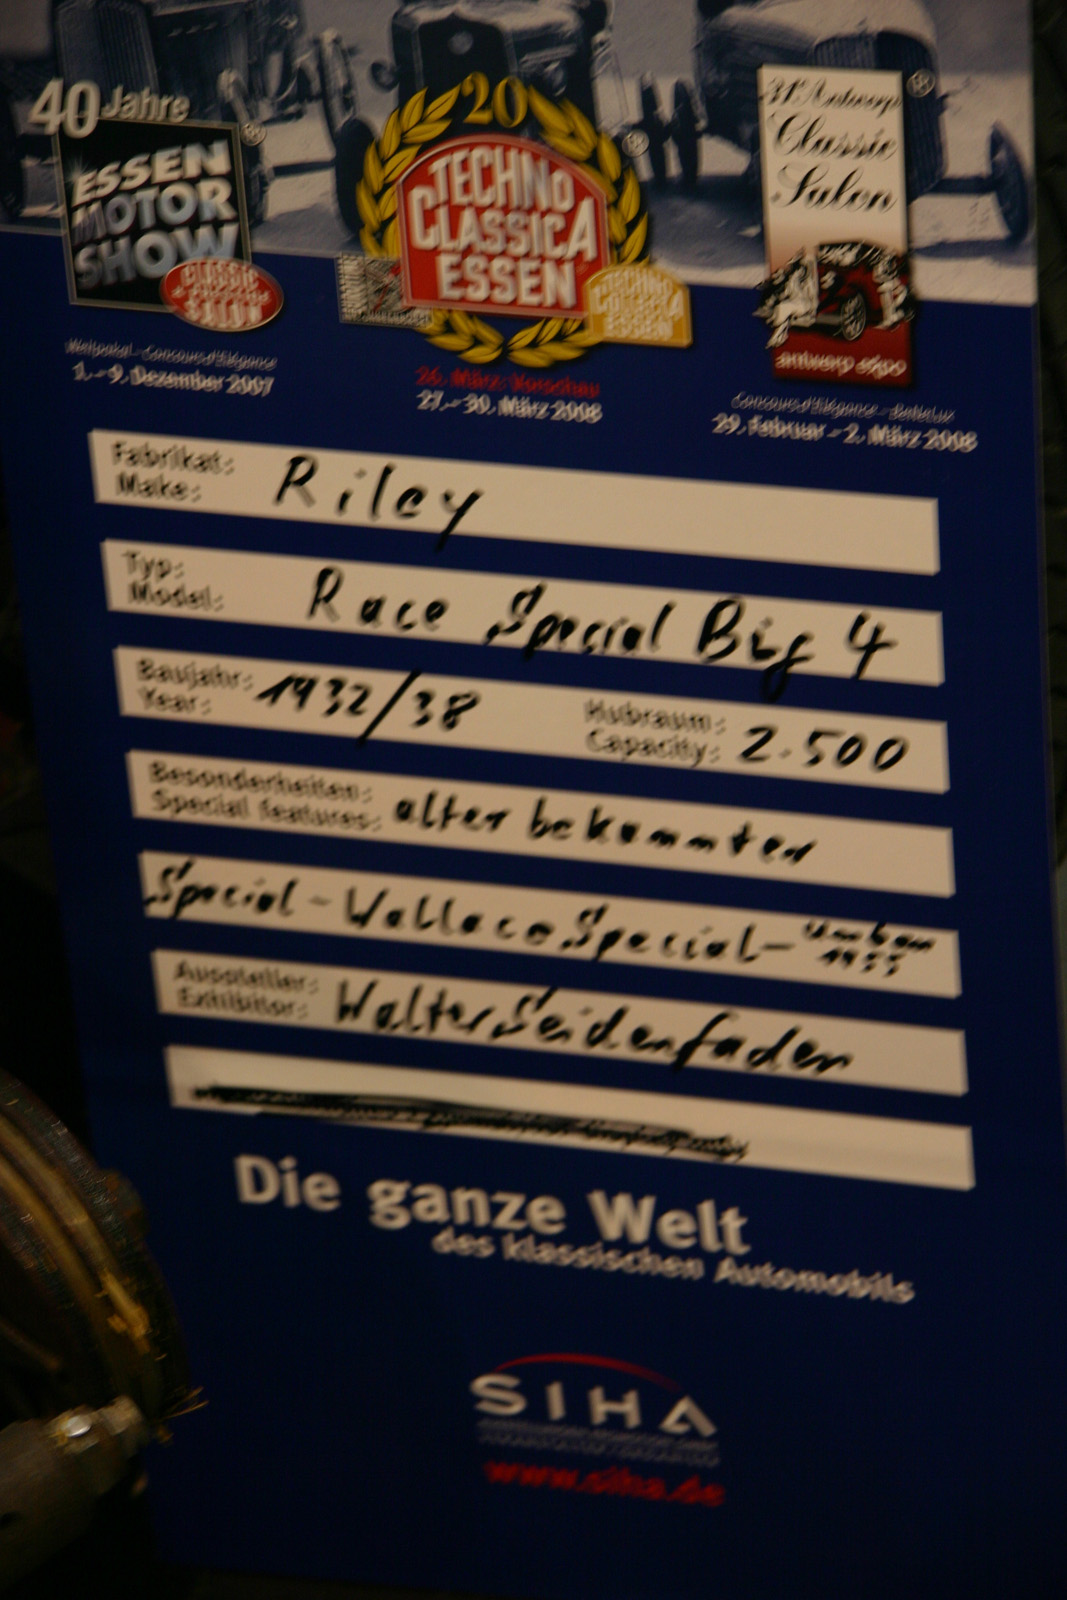 40 Jahre
ESSEN
MOTOR
SHOW
CLASSIC
SALON
Weltpokal - Concours d'Elégance
1. - 9. Dezember 2007
20
TECHNO
CLASSICA
ESSEN
TECHNO
CLASSICA
ESSEN
26. März: Vorschau
27. - 30. März 2008
31st Antwerp
Classic
Salon
antwerp expo
Concours d'Elégance - BeNeLux
29. Februar - 2. März 2008
Fabrikat:
Make: Riley
Typ:
Model: Race Special Big 4
Baujahr:
Year: 1932/38
Hubraum:
Capacity: 2.500
Besonderheiten:
Special features: alter bekannter
Special - Wallace Special - Umbau
Aussteller:
Exhibitor: Walter Seidenfaden
Die ganze Welt
des klassischen Automobils
SIHA
www.siha.de